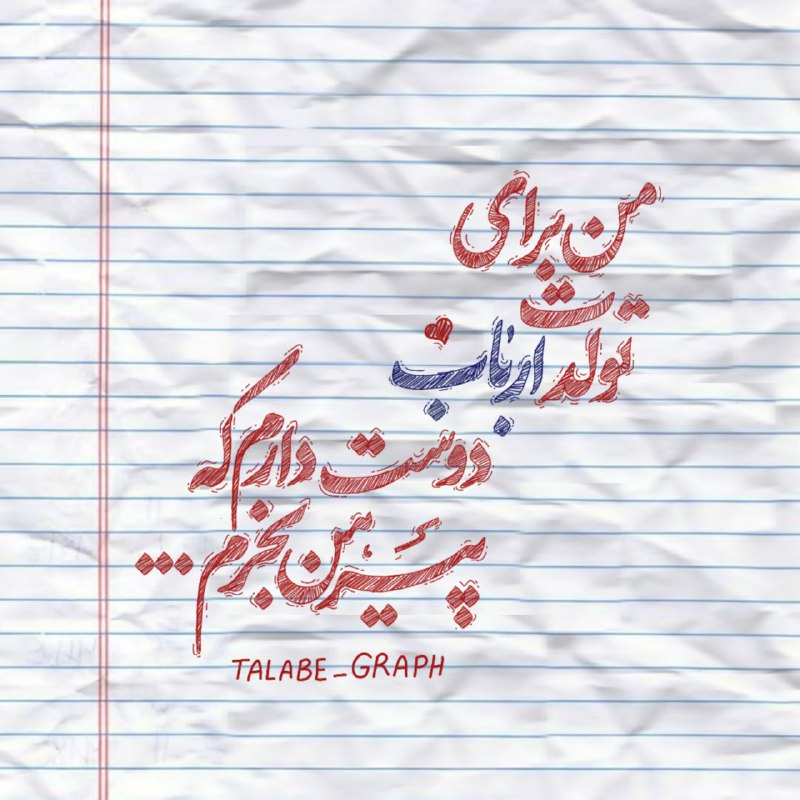 من برای
تولدت ارباب
دوست دارم که
پیرهن بخرم...
TALABE_GRAPH